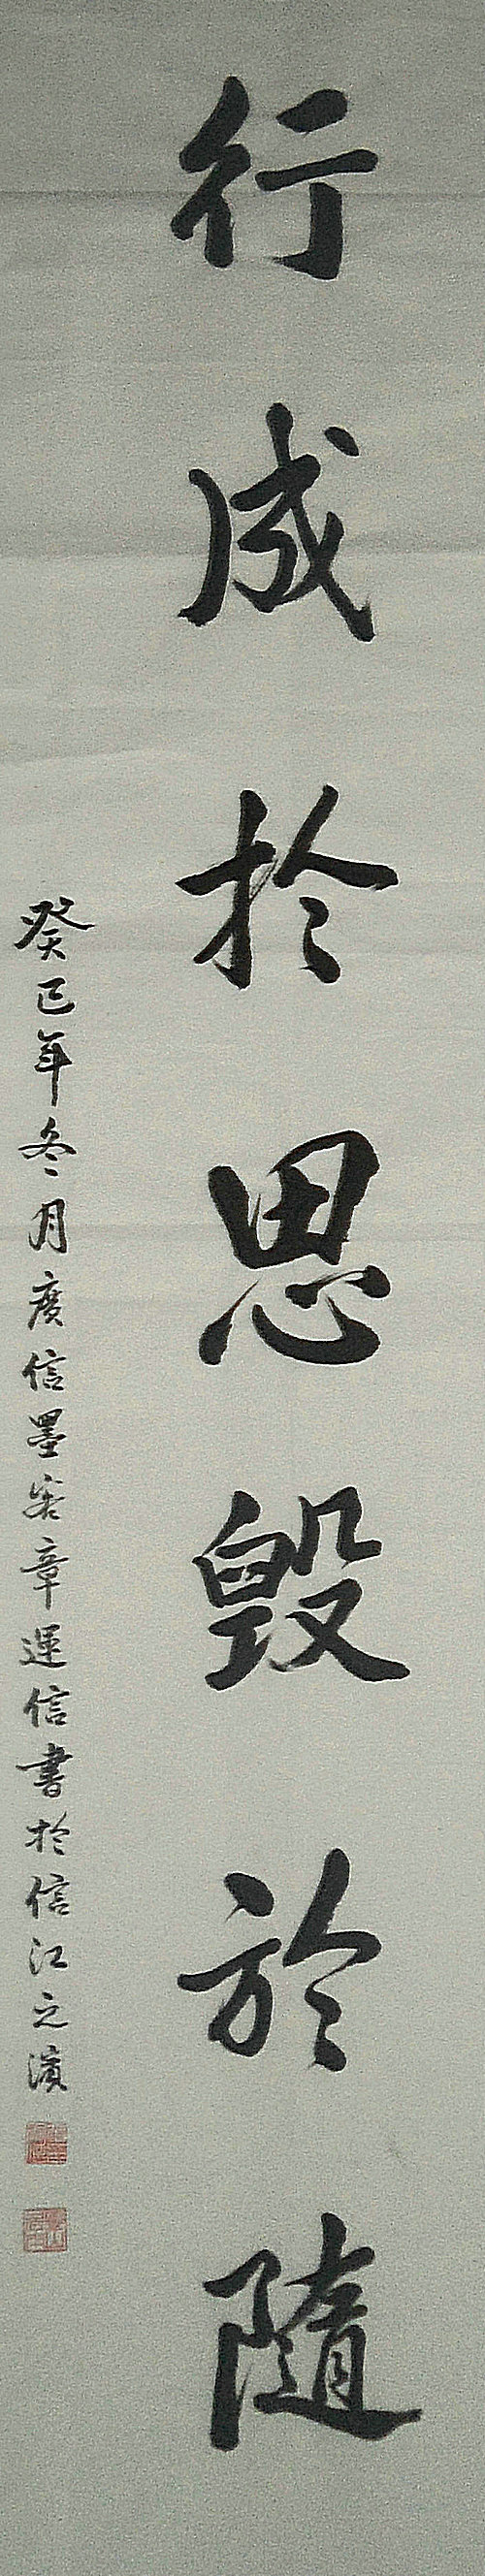 行成於思毀於隨
癸巳年冬月廣信墨客章運信書於信江之濱